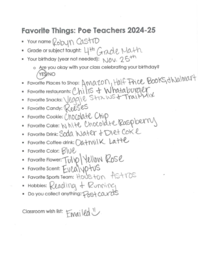 Favorite Things: Poe Teachers 2024-25
• Your name Robyn Castro
• Grade or subject taught: 4th Grade Math
• Your birthday (year not needed!): Nov. 25th
• Are you okay with your class celebrating your birthday?
YES/NO
• Favorite Places to Shop: Amazon, Half Price Books, Walmart
• Favorite restaurants: Chilis + Whataburger
• Favorite Snacks: Veggie Straws + Trail Mix
• Favorite Candy: Reeses
• Favorite Cookie: Chocolate Chip
• Favorite Cake: White Chocolate Raspberry
• Favorite Drink: Soda Water + Diet Coke
• Favorite Coffee drink: Oatmilk Latte
• Favorite Color: Blue
• Favorite Flower: Tulip / Yellow Rose
• Favorite Scent: Eucalyptus
• Favorite Sports Team: Houston Astros
• Hobbies: Reading + Running
• Do you collect anything: Postcards
Classroom wish list: Emailed